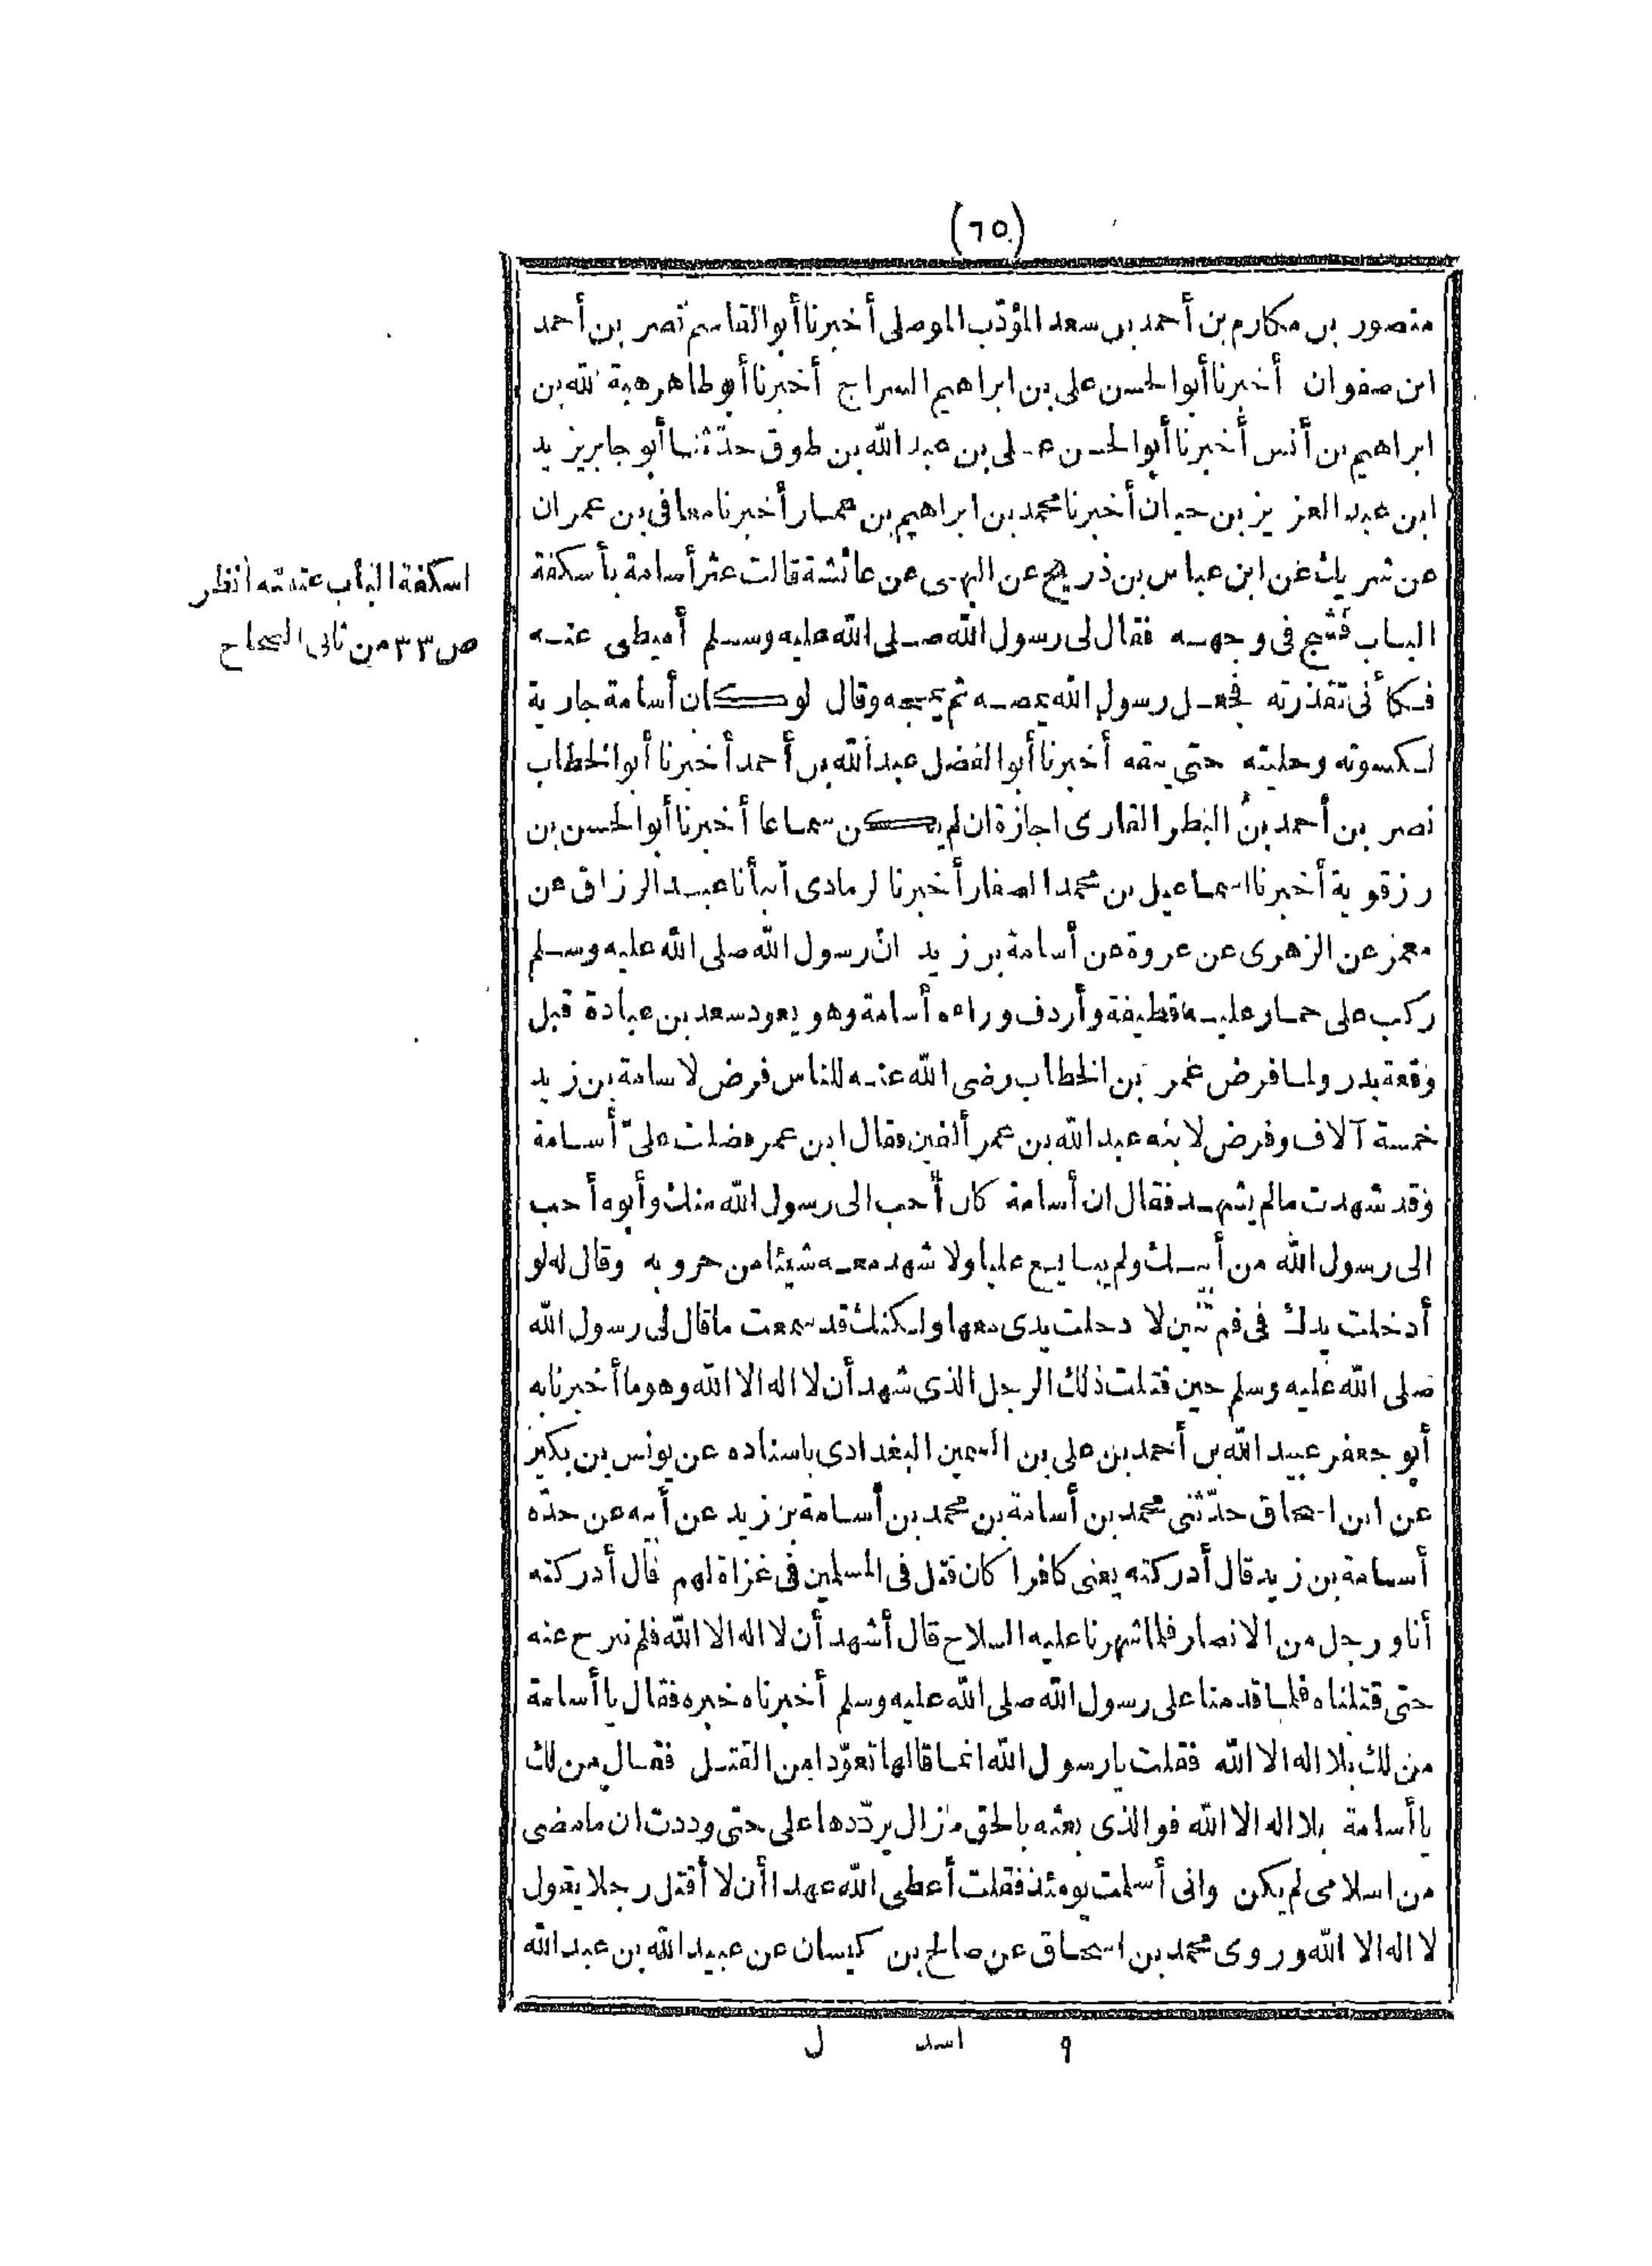 (٦٥)
منصور بن مكارم بن أحمد بن سعد المؤدّب الموصلى أخبرنا أبو القاسم نصر بن أحمد
ابن صفوان أخبرنا أبو الحسن على بن ابراهيم السراج أخبرنا أبو طاهر هبة الله بن
ابراهيم بن أنس أخبرنا أبو الحسن على بن عبد الله بن طوق حدّثنا أبو جابر يزيد
ابن عبد العزيز بن حيان أخبرنا محمد بن ابراهيم بن عمار أخبرنا معافى بن عمران
عن شريك عن ابن عباس بن ذريح عن البهى عن عائشة قالت عثر أسامة بأسكفة
الباب فشج فى وجهه فقال لى رسول الله صلى الله عليه وسلم أميطى عنه
فكأنى تقذرته فجعل رسول الله يمصه ثم يمجه وقال لو كان أسامة جارية
لكسوته وحليته حتى ينفقه أخبرنا أبو الفضل عبد الله بن أحمد أخبرنا أبو الخطاب
نصر بن أحمد بن البطر القارى اجازة ان لم يكن سماعا أخبرنا أبو الحسن بن
رزقوية أخبرنا اسماعيل بن محمد الصفار أخبرنا الرمادى أنبأنا عبد الرزاق عن
معمر عن الزهرى عن عروة عن أسامة بن زيد انّ رسول الله صلى الله عليه وسلم
ركب على حمار عليه قطيفة وأردف وراءه أسامة وهو يعود سعد بن عبادة قبل
وقعة بدر ولما فرض عمر بن الخطاب رضى الله عنه للناس فرض لاسامة بن زيد
خمسة آلاف وفرض لابنه عبد الله بن عمر ألفين فقال ابن عمر فضلت علىّ أسامة
وقد شهدت مالم يشهد فقال ان أسامة كان أحب الى رسول الله منك وأبوه أحب
الى رسول الله من أبيك ولم يبايع عليا ولا شهد معه شيئا من حروبه وقال له لو
أدخلت يدك فى فم تنين لادخلت يدى معها ولكنك قد سمعت ماقال لى رسول الله
صلى الله عليه وسلم حين قتلت ذلك الرجل الذى شهد أن لا اله الا الله وهو ما أخبرنا به
أبو جعفر عبيد الله بن أحمد بن على بن السمين البغدادى باسناده عن يونس بن بكير
عن ابن اسحاق حدّثنى محمد بن أسامة بن محمد بن أسامة بن زيد عن أبيه عن جدّه
أسامة بن زيد قال أدركته يعنى كافرا كان قتل فى المسلمين فى غزاة لهم قال أدركته
أنا ورجل من الانصار فلما شهرنا عليه السلاح قال أشهد أن لا اله الا الله فلم نبرح عنه
حتى قتلناه فلما قدمنا على رسول الله صلى الله عليه وسلم أخبرناه خبره فقال يا أسامة
من لك بلا اله الا الله فقلت يا رسول الله انما قالها تعوّذا من القتل فقال من لك
يا أسامة بلا اله الا الله فوالذى بعثه بالحق مازال يردّدها على حتى وددت ان مامضى
من اسلامى لم يكن وانى أسلمت يومئذ فقلت أعطى الله عهدا أن لا أقتل رجلا يقول
لا اله الا الله وروى محمد بن اسحاق عن صالح بن كيسان عن عبيد الله بن عبد الله
اسكفة الباب عتبته انظر
ص ٣٣ من ثانى الصحاح
٩ اسد ل